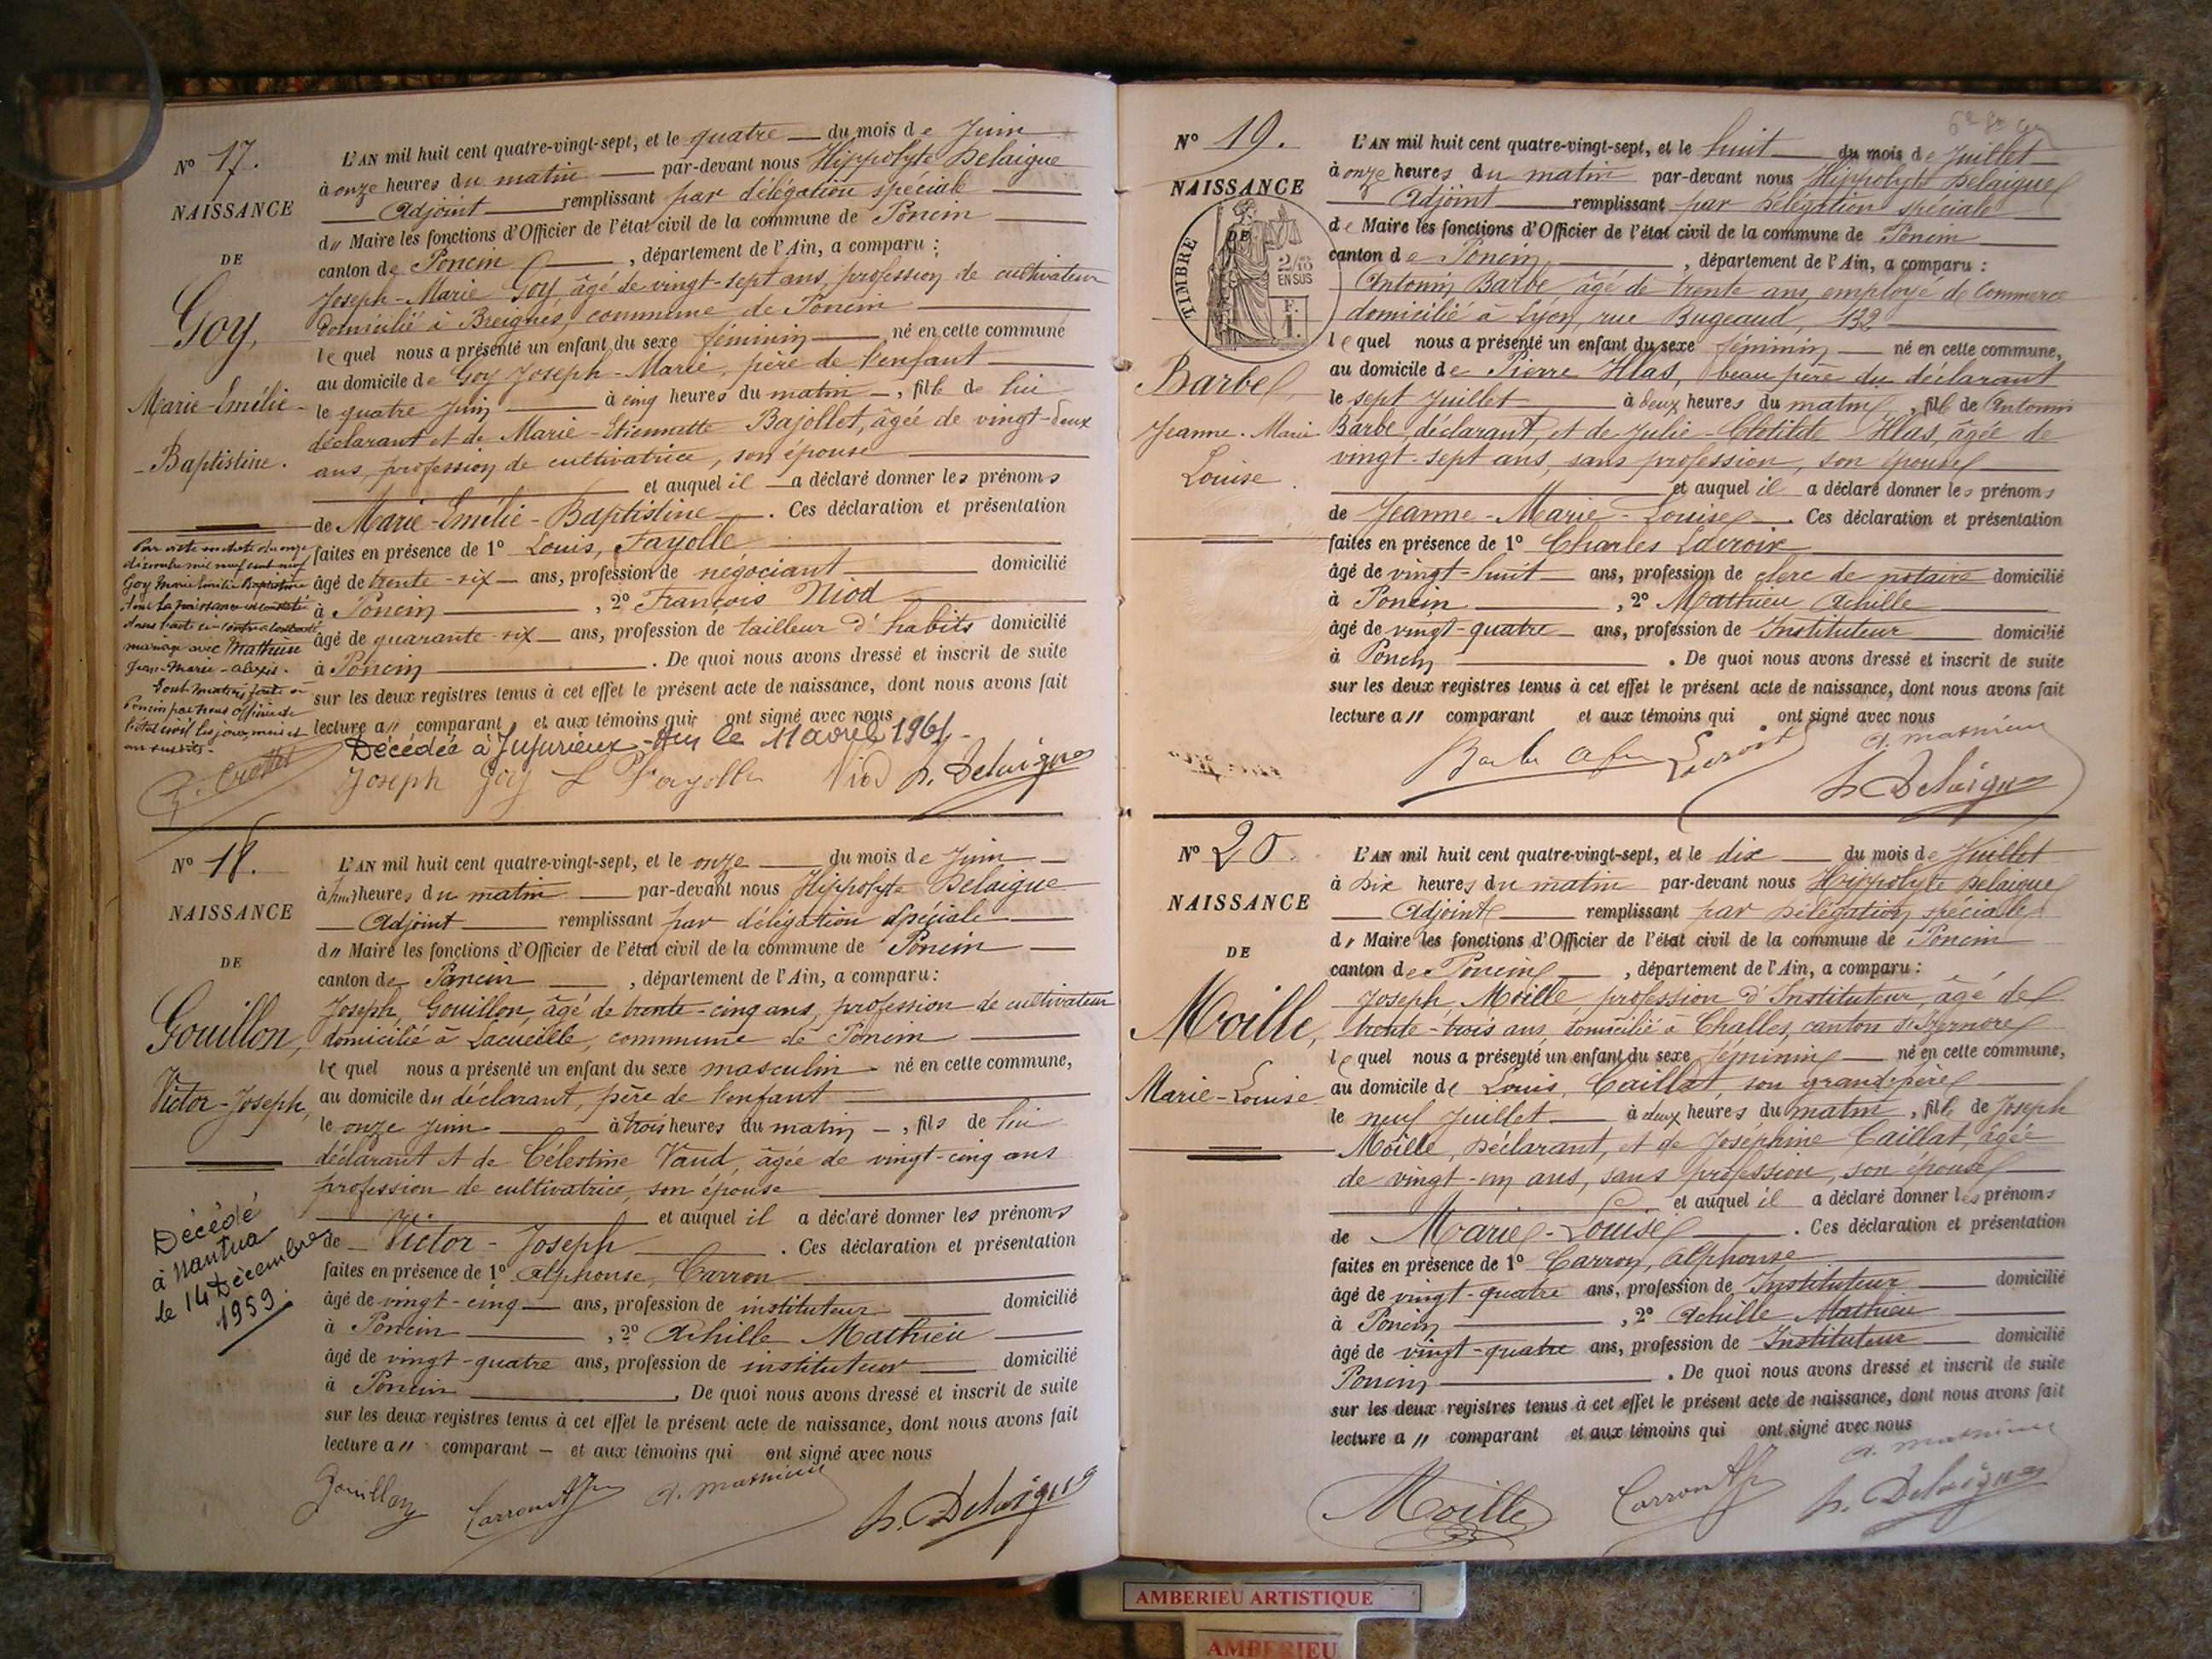 N° 17.
NAISSANCE
DE
Goy,
Marie-Emélie-
-Baptistine.
L'AN mil huit cent quatre-vingt-sept, et le quatre du mois de Juin
à onze heures du matin par-devant nous Hippolyte Delaigue
Adjoint remplissant par délégation spéciale
d" Maire les fonctions d'Officier de l'état civil de la commune de Poncin
canton de Poncin, département de l'Ain, a comparu :
Joseph-Marie Goy, âgé de vingt-sept ans, profession de cultivateur
domicilié à Breignes, commune de Poncin
lequel nous a présenté un enfant du sexe féminin né en cette commune
au domicile de Goy Joseph-Marie, père de l'enfant
le quatre Juin à cinq heures du matin, fille de lui
déclarant et de Marie-Etiennette Bajollet, âgée de vingt-deux
ans, profession de cultivatrice, son épouse
et auquel il a déclaré donner les prénoms
de Marie-Emélie-Baptistine. Ces déclaration et présentation
faites en présence de 1° Louis, Fayolle
âgé de trente-six ans, profession de négociant domicilié
à Poncin, 2° François Niod
âgé de quarante-six ans, profession de tailleur d'habits domicilié
à Poncin. De quoi nous avons dressé et inscrit de suite
sur les deux registres tenus à cet effet le présent acte de naissance, dont nous avons fait
lecture a" comparant et aux témoins qui ont signé avec nous
Décédée à Jujurieux - Ain le 11 avril
Joseph Goy L Fayolle Niod h. Delaigue
Par acte en date du onze
décembre mil neuf cent neuf
Goy Marie Emilie Baptistine
dont la naissance est constatée
dans l'acte ci-contre a contracté
mariage avec Mathieu
Jean-Marie-Alexis.
Poncin par nous officier de
l'état civil les jour, mois et
an susdits.
N° 18.
NAISSANCE
DE
Gouillon,
Victor-Joseph,
L'AN mil huit cent quatre-vingt-sept, et le onze du mois de Juin
à heures du matin par-devant nous Hippolyte Delaigue
Adjoint remplissant par délégation spéciale
d" Maire les fonctions d'Officier de l'état civil de la commune de Poncin
canton de Poncin, département de l'Ain, a comparu :
Joseph, Gouillon, âgé de trente-cinq ans, profession de cultivateur
domicilié à Lacueille, commune de Poncin
lequel nous a présenté un enfant du sexe masculin né en cette commune,
au domicile du déclarant, père de l'enfant
le onze juin à trois heures du matin, fils de lui
déclarant et de Célestine Vaud, âgée de vingt-cinq ans
profession de cultivatrice, son épouse
et auquel il a déclaré donner les prénoms
de Victor-Joseph. Ces déclaration et présentation
faites en présence de 1° Alphonse, Carron
âgé de vingt-cinq ans, profession de instituteur domicilié
à Poncin, 2° Achille Mathieu
âgé de vingt-quatre ans, profession de instituteur domicilié
à Poncin. De quoi nous avons dressé et inscrit de suite
sur les deux registres tenus à cet effet le présent acte de naissance, dont nous avons fait
lecture a" comparant et aux témoins qui ont signé avec nous
Gouillon Carron A. Mathieu h. Delaigue
Décédé
à Nantua
le 14 Décembre
1959.
N° 19.
NAISSANCE
DE
TIMBRE
2/10
EN SUS
F.
1.
Barbe,
Jeanne-Marie
Louise.
L'AN mil huit cent quatre-vingt-sept, et le huit du mois de Juillet
à onze heures du matin par-devant nous Hippolyte Delaigue
Adjoint remplissant par délégation spéciale
de Maire les fonctions d'Officier de l'état civil de la commune de Poncin
canton de Poncin, département de l'Ain, a comparu :
Antonin Barbe, âgé de trente ans, employé de Commerce
domicilié à Lyon, rue Bugeaud, 132
lequel nous a présenté un enfant du sexe féminin né en cette commune,
au domicile de Pierre Hlas, beau père du déclarant
le sept Juillet à deux heures du matin, fille de Antonin
Barbe, déclarant, et de Julie-Clotilde Hlas, âgée de
vingt-sept ans, sans profession, son épouse
et auquel il a déclaré donner les prénoms
de Jeanne-Marie-Louise. Ces déclaration et présentation
faites en présence de 1° Charles Lacroix
âgé de vingt-huit ans, profession de clerc de notaire domicilié
à Poncin, 2° Mathieu Achille
âgé de vingt-quatre ans, profession de Instituteur domicilié
à Poncin. De quoi nous avons dressé et inscrit de suite
sur les deux registres tenus à cet effet le présent acte de naissance, dont nous avons fait
lecture a" comparant et aux témoins qui ont signé avec nous
Barbe Lacroix A. Mathieu
h. Delaigue
N° 20.
NAISSANCE
DE
Moille,
Marie-Louise
L'AN mil huit cent quatre-vingt-sept, et le dix du mois de Juillet
à Dix heures du matin par-devant nous Hippolyte Delaigue
Adjoint remplissant par délégation spéciale
d" Maire les fonctions d'Officier de l'état civil de la commune de Poncin
canton de Poncin, département de l'Ain, a comparu :
Joseph, Moille profession d'Instituteur, âgé de
trente-trois ans, domicilié à Challes, canton d'Izernore
lequel nous a présenté un enfant du sexe féminin né en cette commune,
au domicile de Louis, Caillat, son grand-père
le neuf Juillet à deux heures du matin, fille de Joseph
Moille, déclarant, et de Joséphine Caillat, âgée
de vingt-un ans, sans profession, son épouse
et auquel il a déclaré donner les prénoms
de Marie-Louise. Ces déclaration et présentation
faites en présence de 1° Carron, Alphonse
âgé de vingt-quatre ans, profession de Instituteur domicilié
à Poncin, 2° Achille Mathieu
âgé de vingt-quatre ans, profession de Instituteur domicilié
Poncin. De quoi nous avons dressé et inscrit de suite
sur les deux registres tenus à cet effet le présent acte de naissance, dont nous avons fait
lecture a" comparant et aux témoins qui ont signé avec nous
Moille Carron A. Mathieu
h. Delaigue
AMBERIEU ARTISTIQUE
AMBERIEU